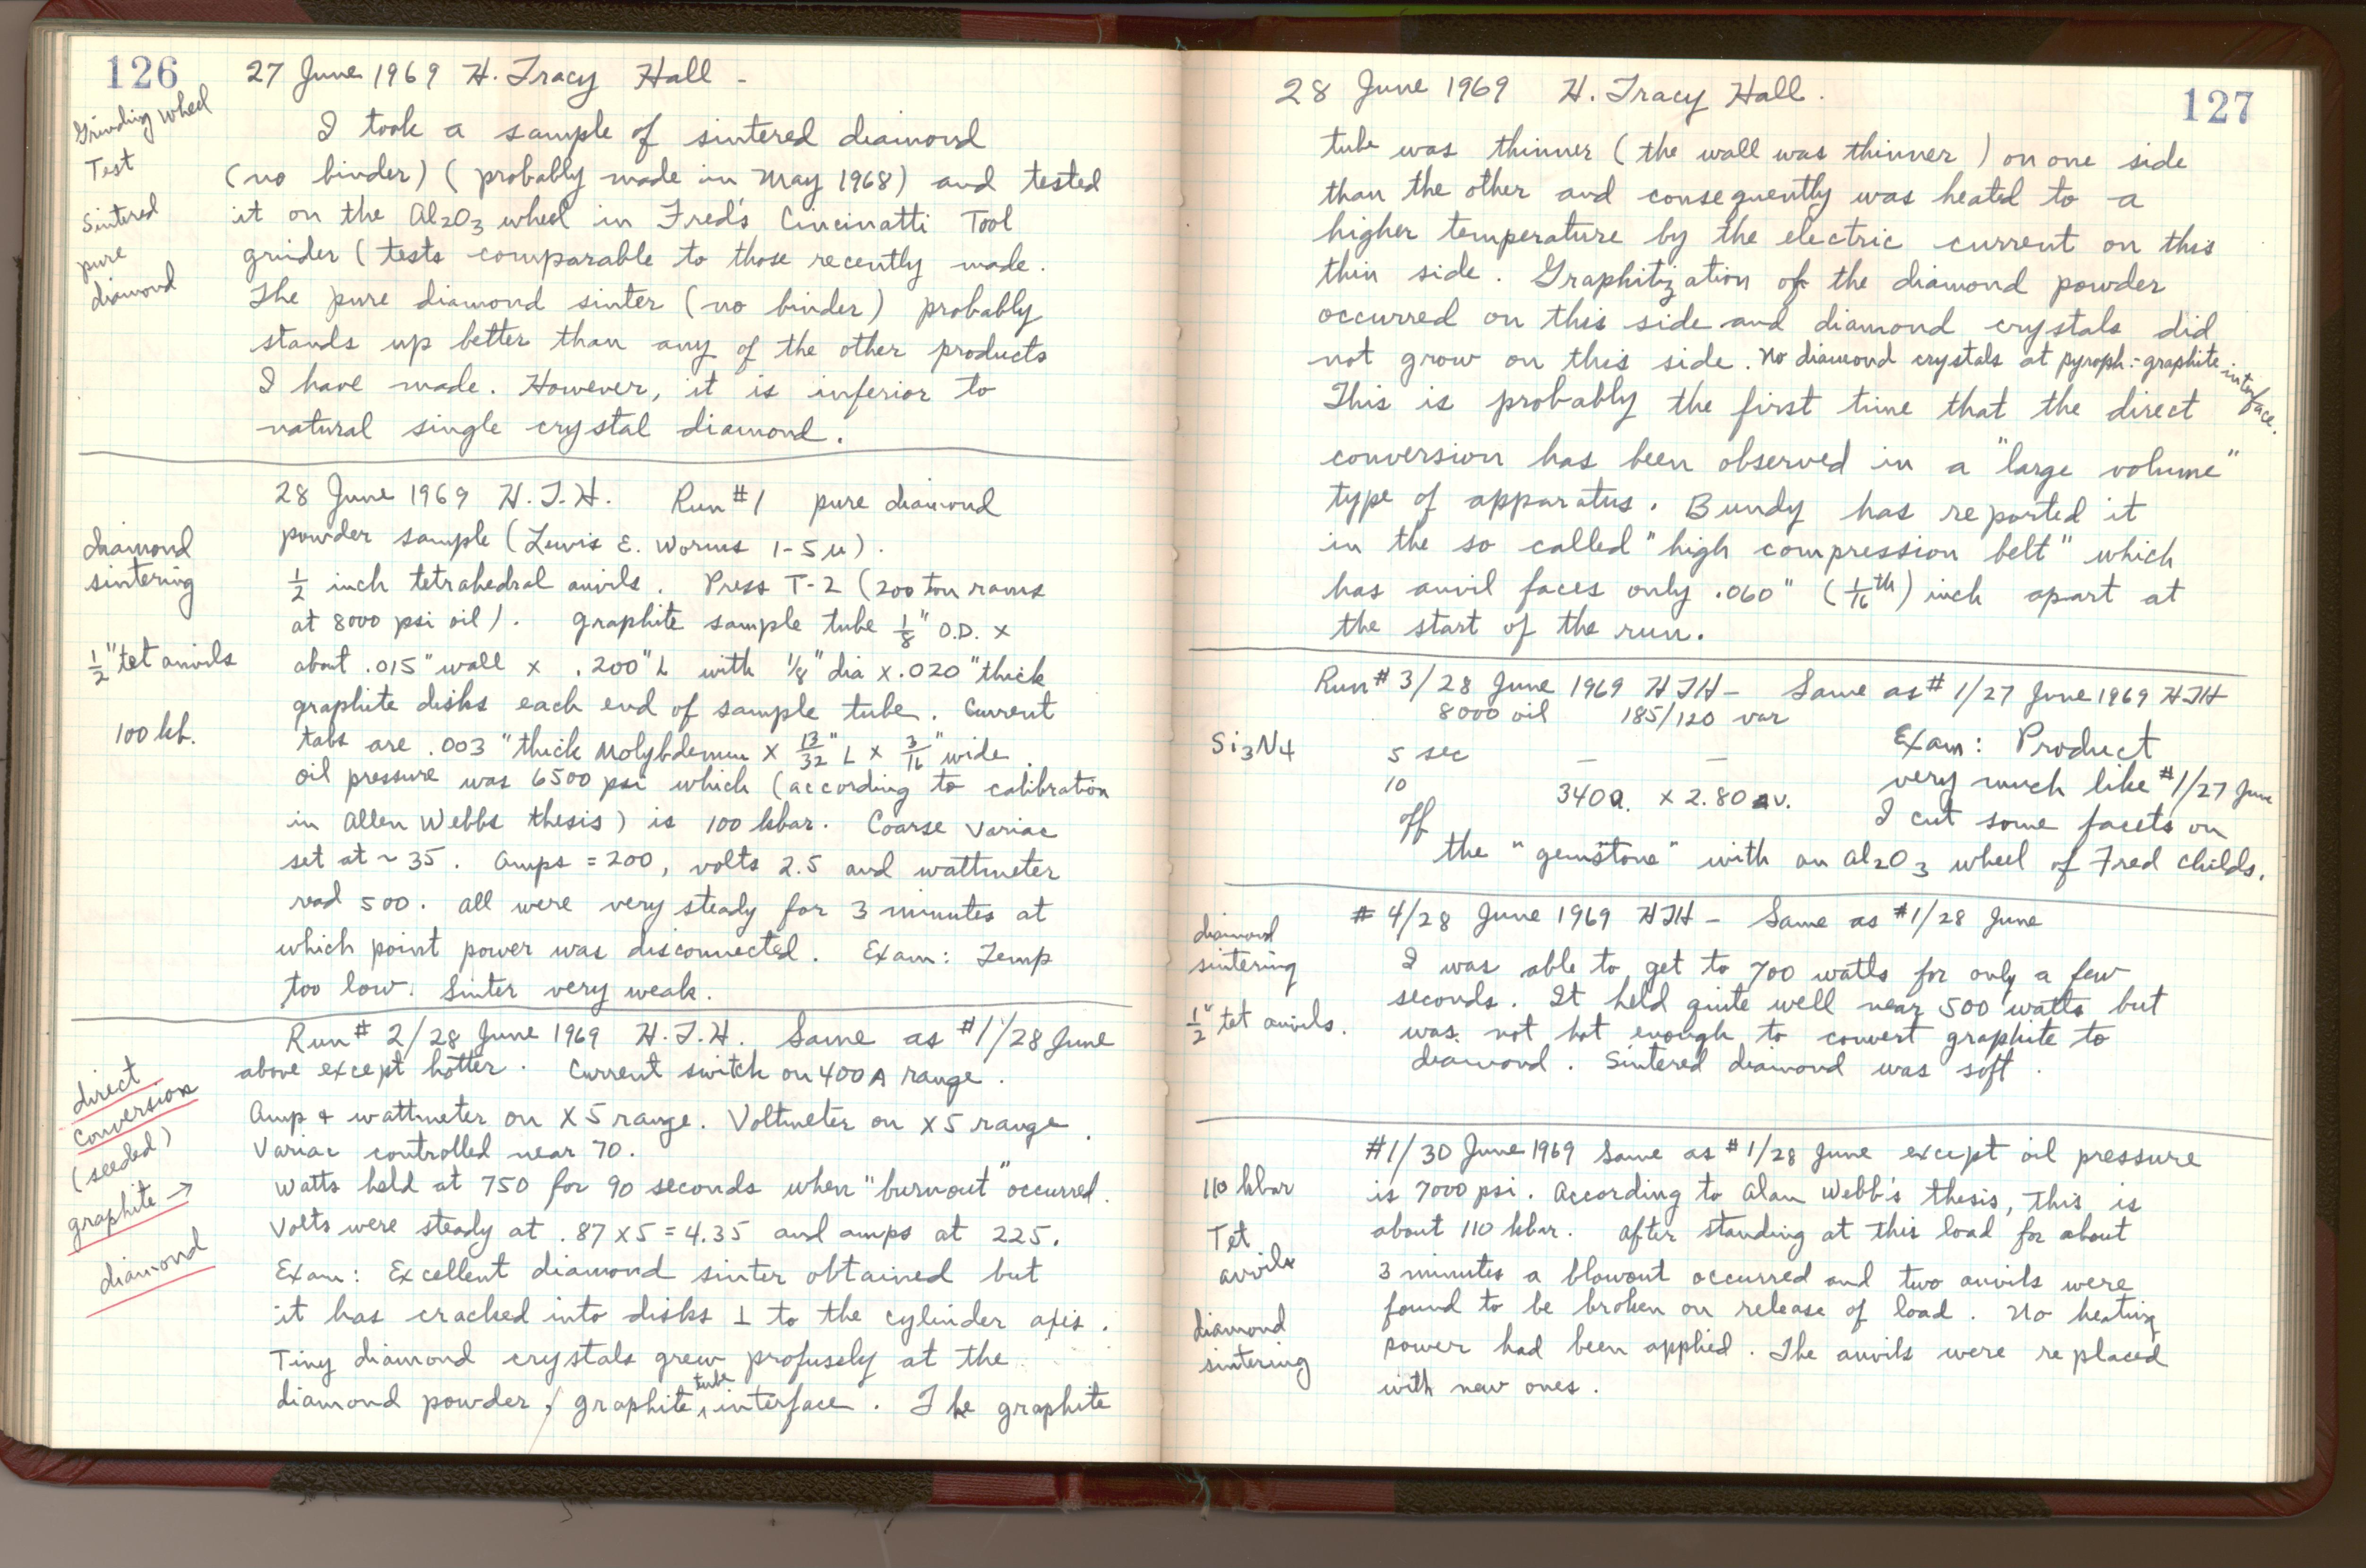 126
27 June 1969 H. Tracy Hall -
Grinding wheel
Test
Sintered
pure
diamond
I took a sample of sintered diamond
(no binder) (probably made in May 1968) and tested
it on the Al2O3 wheel in Fred's Cincinatti Tool
grinder (tests comparable to those recently made.
The pure diamond sinter (no binder) probably
stands up better than any of the other products
I have made. However, it is inferior to
natural single crystal diamond.
28 June 1969 H.T.H. Run #1 pure diamond
diamond
sintering
1/2" tet anvils
100 kb.
powder sample (Lewis E. Worms 1-5 μ).
1/2 inch tetrahedral anvils. Press T-2 (200 ton rams
at 8000 psi oil). graphite sample tube 1/8" O.D. x
about .015" wall x .200" L with 1/8" dia x .020" thick
graphite disks each end of sample tube. Current
tabs are .003" thick Molybdenum x 13/32" L x 3/16" wide.
oil pressure was 6500 psi which (according to calibration
in Allen Webbs thesis) is 100 kbar. Coarse Variac
set at ~ 35. Amps = 200, volts 2.5 and wattmeter
read 500. all were very steady for 3 minutes at
which point power was disconnected. Exam: Temp
too low. Sinter very weak.
Run # 2/28 June 1969 H.T.H. Same as #1/28 June
direct
conversion
(seeded)
graphite →
diamond
above except hotter. Current switch on 400A range.
Amp & wattmeter on X5 range. Voltmeter on X5 range.
Variac controlled near 70.
Watts held at 750 for 90 seconds when "burnout" occurred.
Volts were steady at .87 x 5 = 4.35 and amps at 225.
Exam: Excellent diamond sinter obtained but
it has cracked into disks ⊥ to the cylinder axis.
Tiny diamond crystals grew profusely at the
diamond powder / graphite tube interface. The graphite
28 June 1969 H. Tracy Hall.
127
tube was thinner (the wall was thinner) on one side
than the other and consequently was heated to a
higher temperature by the electric current on this
thin side. Graphitization of the diamond powder
occurred on this side and diamond crystals did
not grow on this side. No diamond crystals at pyroph.-graphite interface.
This is probably the first time that the direct
conversion has been observed in a "large volume"
type of apparatus. Bundy has reported it
in the so called "high compression belt" which
has anvil faces only .060" (1/16th) inch apart at
the start of the run.
Run # 3/28 June 1969 HTH - Same as # 1/27 June 1969 HTH
8000 oil 185/120 var
Si3N4
5 sec — —
10 340a. x 2.80 v.
off
Exam: Product
very much like #1/27 June
I cut some facets on
the "gemstone" with an Al2O3 wheel of Fred Childs.
# 4/28 June 1969 HTH - Same as #1/28 June
diamond
sintering
1/2" tet anvils.
I was able to get to 700 watts for only a few
seconds. It held quite well near 500 watts but
was not hot enough to convert graphite to
diamond. Sintered diamond was soft.
#1/30 June 1969 Same as #1/28 June except oil pressure
110 kbar
Tet
anvils
diamond
sintering
is 7000 psi. According to Alan Webb's thesis, this is
about 110 kbar. After standing at this load for about
3 minutes a blowout occurred and two anvils were
found to be broken on release of load. No heating
power had been applied. The anvils were replaced
with new ones.